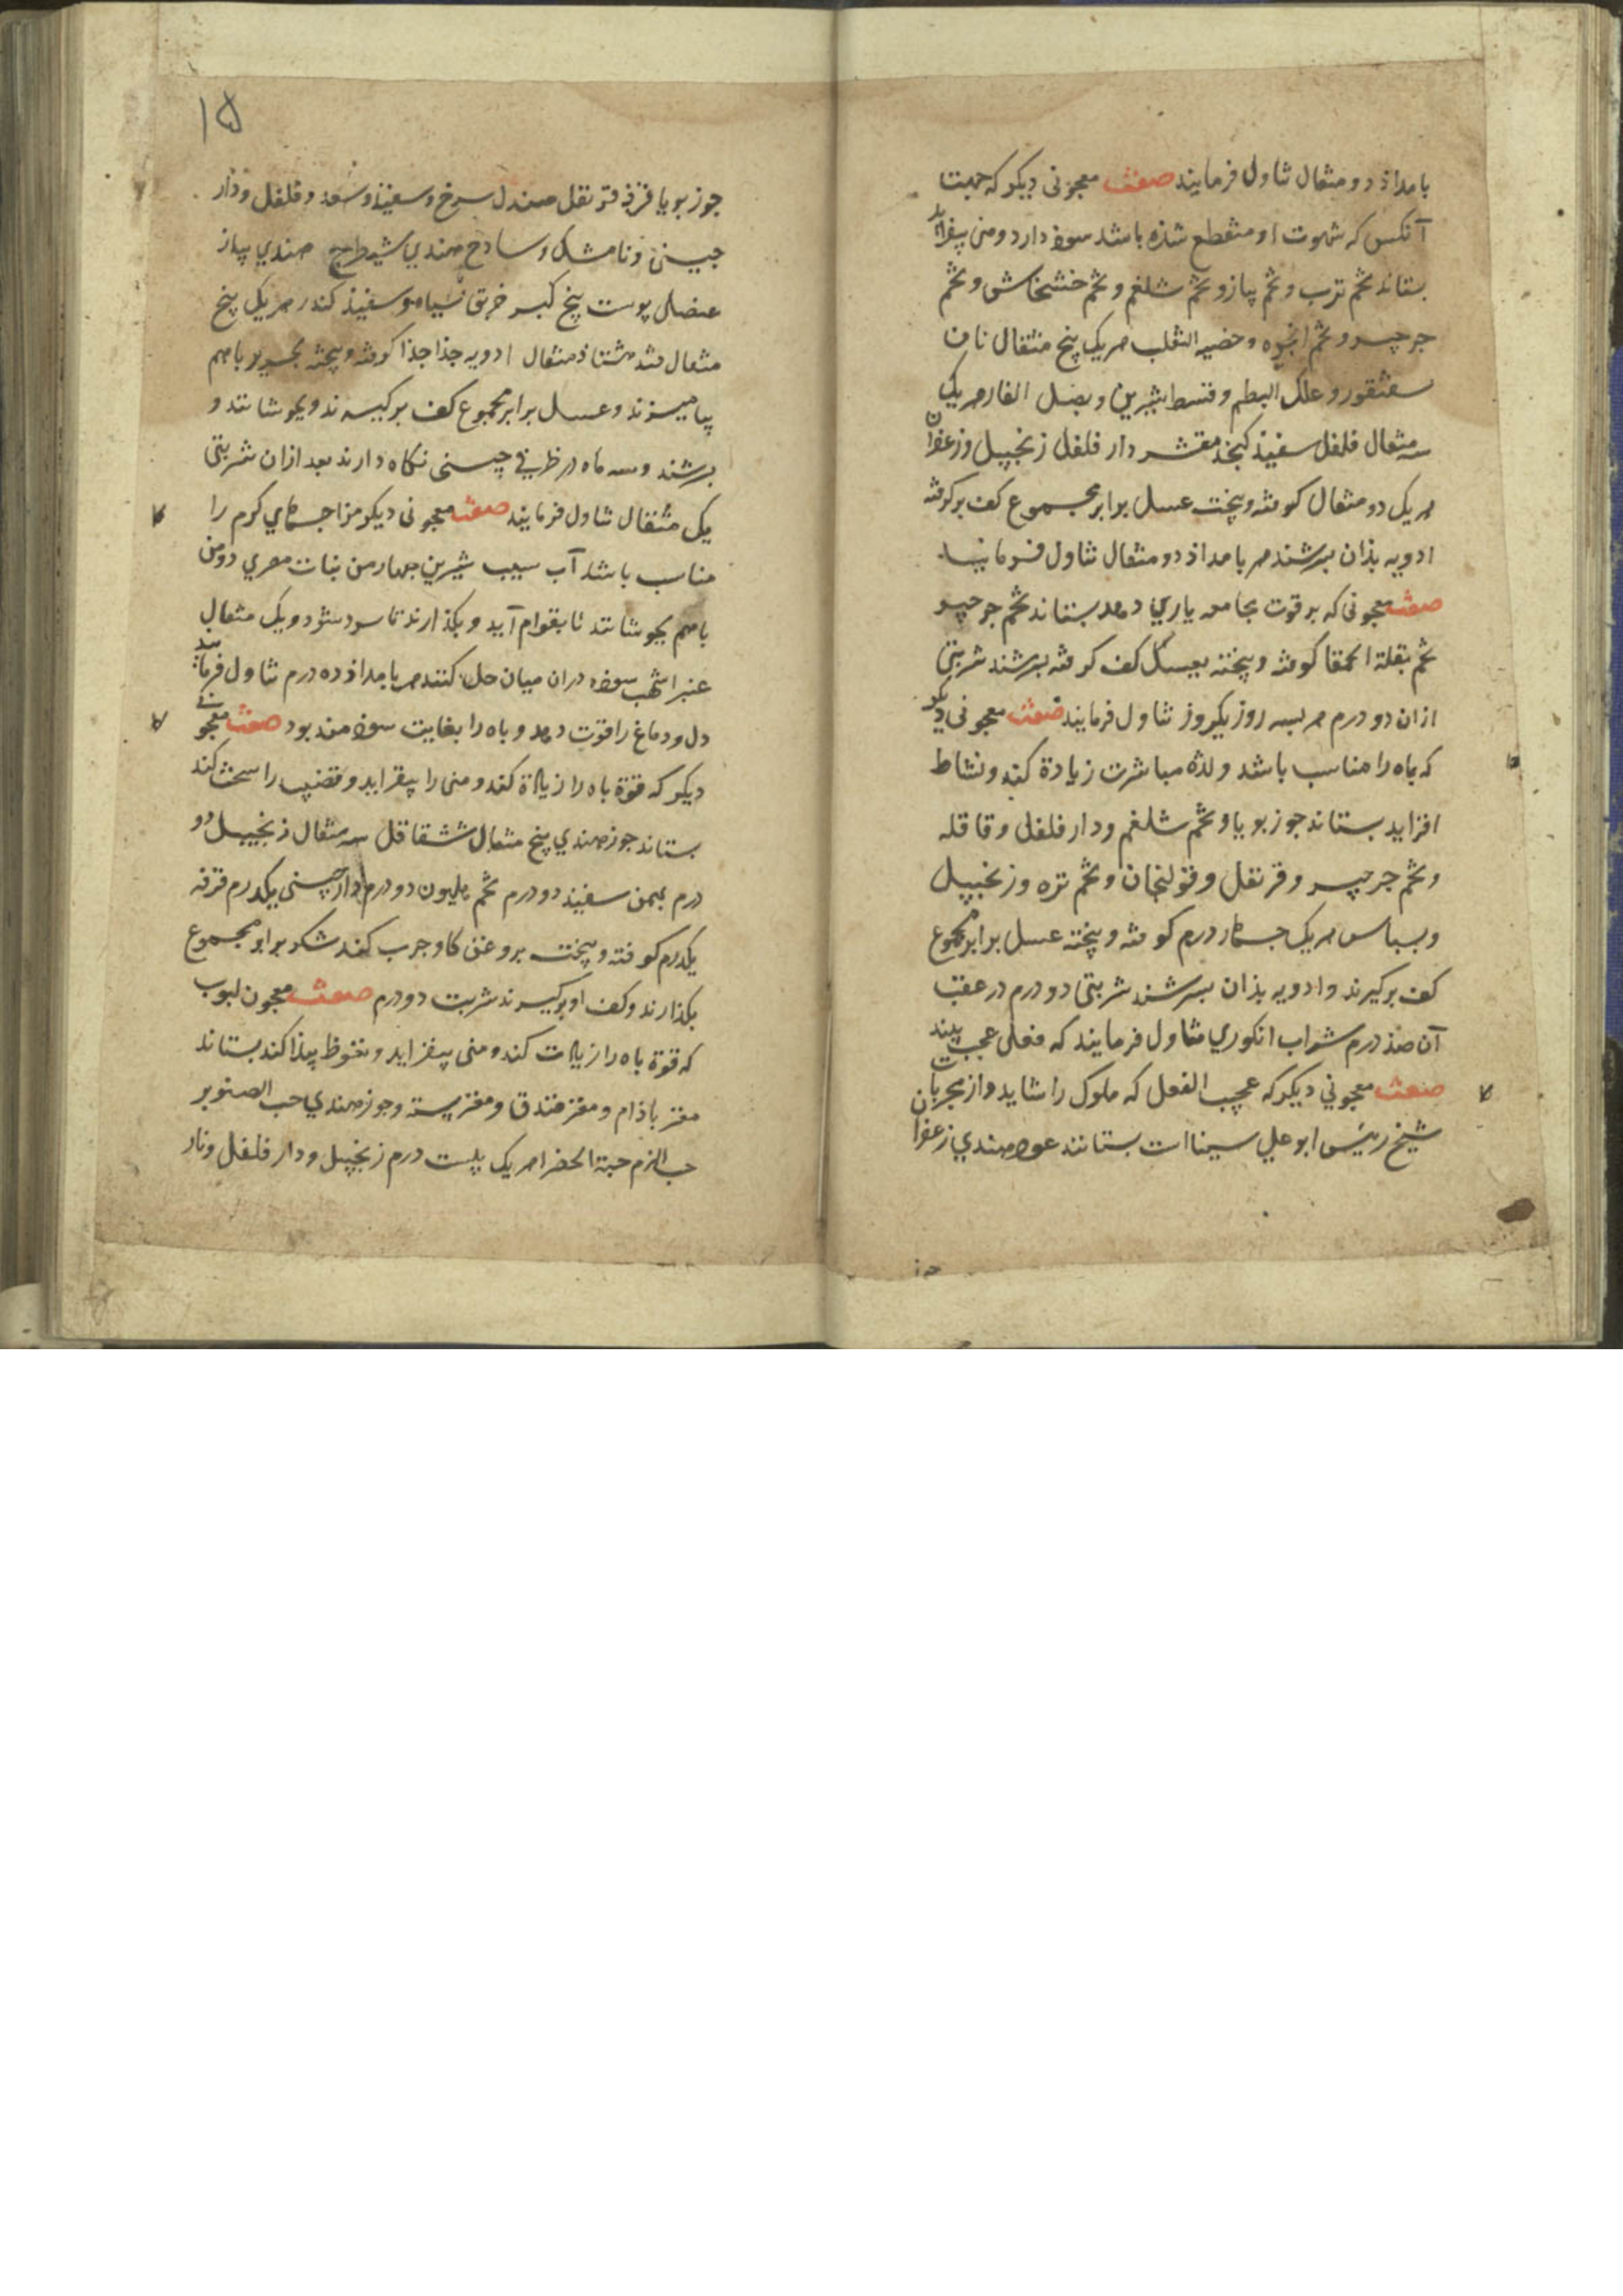 بامداذ دو مثقال تناول فرمایند صفت معجونی دیکر که جهت
آنکس که شهوت او منقطع شذه باشد سوذ دارد و منی بیفزاید
بستاند تخم ترب و تخم پیاز و تخم شلغم و تخم خشخاش و تخم
جرجیر و تخم انجره و خصیه الثعلب هر یک پنج مثقال ناف
سقنقور و علک البطم و قسط شیرین و بصل الفار هر یک
سه مثقال فلفل سفیذ کنجذ مقشر دار فلفل زنجبیل و زعفران
هر یک دو مثقال کوفته و پیخته عسل برابر مجموع کف برکرفته
ادویه بذان بسرشند هر بامداذ دو مثقال تناول فرمایند
صفت معجونی که بر قوت مجامعه یاری دهد بستاند تخم جرجیر
تخم بقلة الحمقا کوفته و پیخته بعسل کف کرفته بسرشند شربتی
ازان دو درم هر بسه روز یکروز تناول فرمایند صفت معجونی دیکر
که باه را مناسب باشد و لذة مباشرت زیادة کند و نشاط
افزاید بستاند جوز بویا و تخم شلغم و دار فلفل و قاقله
و تخم جرجیر و قرنفل و خولنجان و تخم تره و زنجبیل
و بسباس هر یک چهار درم کوفته و پیخته عسل برابر مجموع
کف برکیرند و ادویه بذان بسرشند شربتی دو درم در عقب
آن صذ درم شراب انکوری تناول فرمایند که فعلی عجب بیند
صفت معجونی دیکر که عجیب الفعل که ملوک را شاید و از مجربات
شیخ رئیس ابو علی سینا است بستانند عود هندی زعفران
جوز
۱۵
جوز بویا قرفه قرنفل صندل سرخ و سفیذ و سعد و فلفل و دار
چینی و نارمشک و سادج هندی شیطرج هندی پیاز
عنصل پوست بیخ کبر خربق سیاه و سفیذ کندر هر یک پنج
مثقال قند هشتاذ مثقال ادویه جذا جذا کوفته و پیخته بحریر باهم
بیامیزند و عسل برابر مجموع کف برکیرند و بجوشانند و
بسرشند و سه ماه در ظرفی چینی نکاه دارند بعد ازان شربتی
یک مثقال تناول فرمایند صفت معجونی دیکر مزاجهای کرم را
مناسب باشد آب سیب شیرین چهار من نبات مصری دو من
باهم بجوشانند تا بقوام آید و بکذارند تا سرد شود و یک مثقال
عنبر اشهب سوده دران میان حل کنند هر بامداذ ده درم تناول فرمایند
دل و دماغ را قوت دهد و باه را بغایت سوذمند بود صفت معجونی
دیکر که قوة باه را زیادة کند و منی را بیفزاید و قضیب را سخت کند
بستاند جوز هندی پنج مثقال شقاقل سه مثقال زنجبیل دو
درم بهمن سفیذ دو درم تخم هلیون دو درم دارچینی یکدرم قرفه
یکدرم کوفته و پیخته بروغن کاو چرب کند شکر برابر مجموع
بکذارند و کف او برکیرند شربت دو درم صفت معجون لبوب
که قوة باه را زیادت کند و منی بیفزاید و نعوظ پیذا کند بستاند
مغز باذام و مغز فندق و مغز پسته و جوز هندی حب الصنوبر
حب الزم حبة الخضرا هر یک بیست درم زنجبیل و دار فلفل و نار